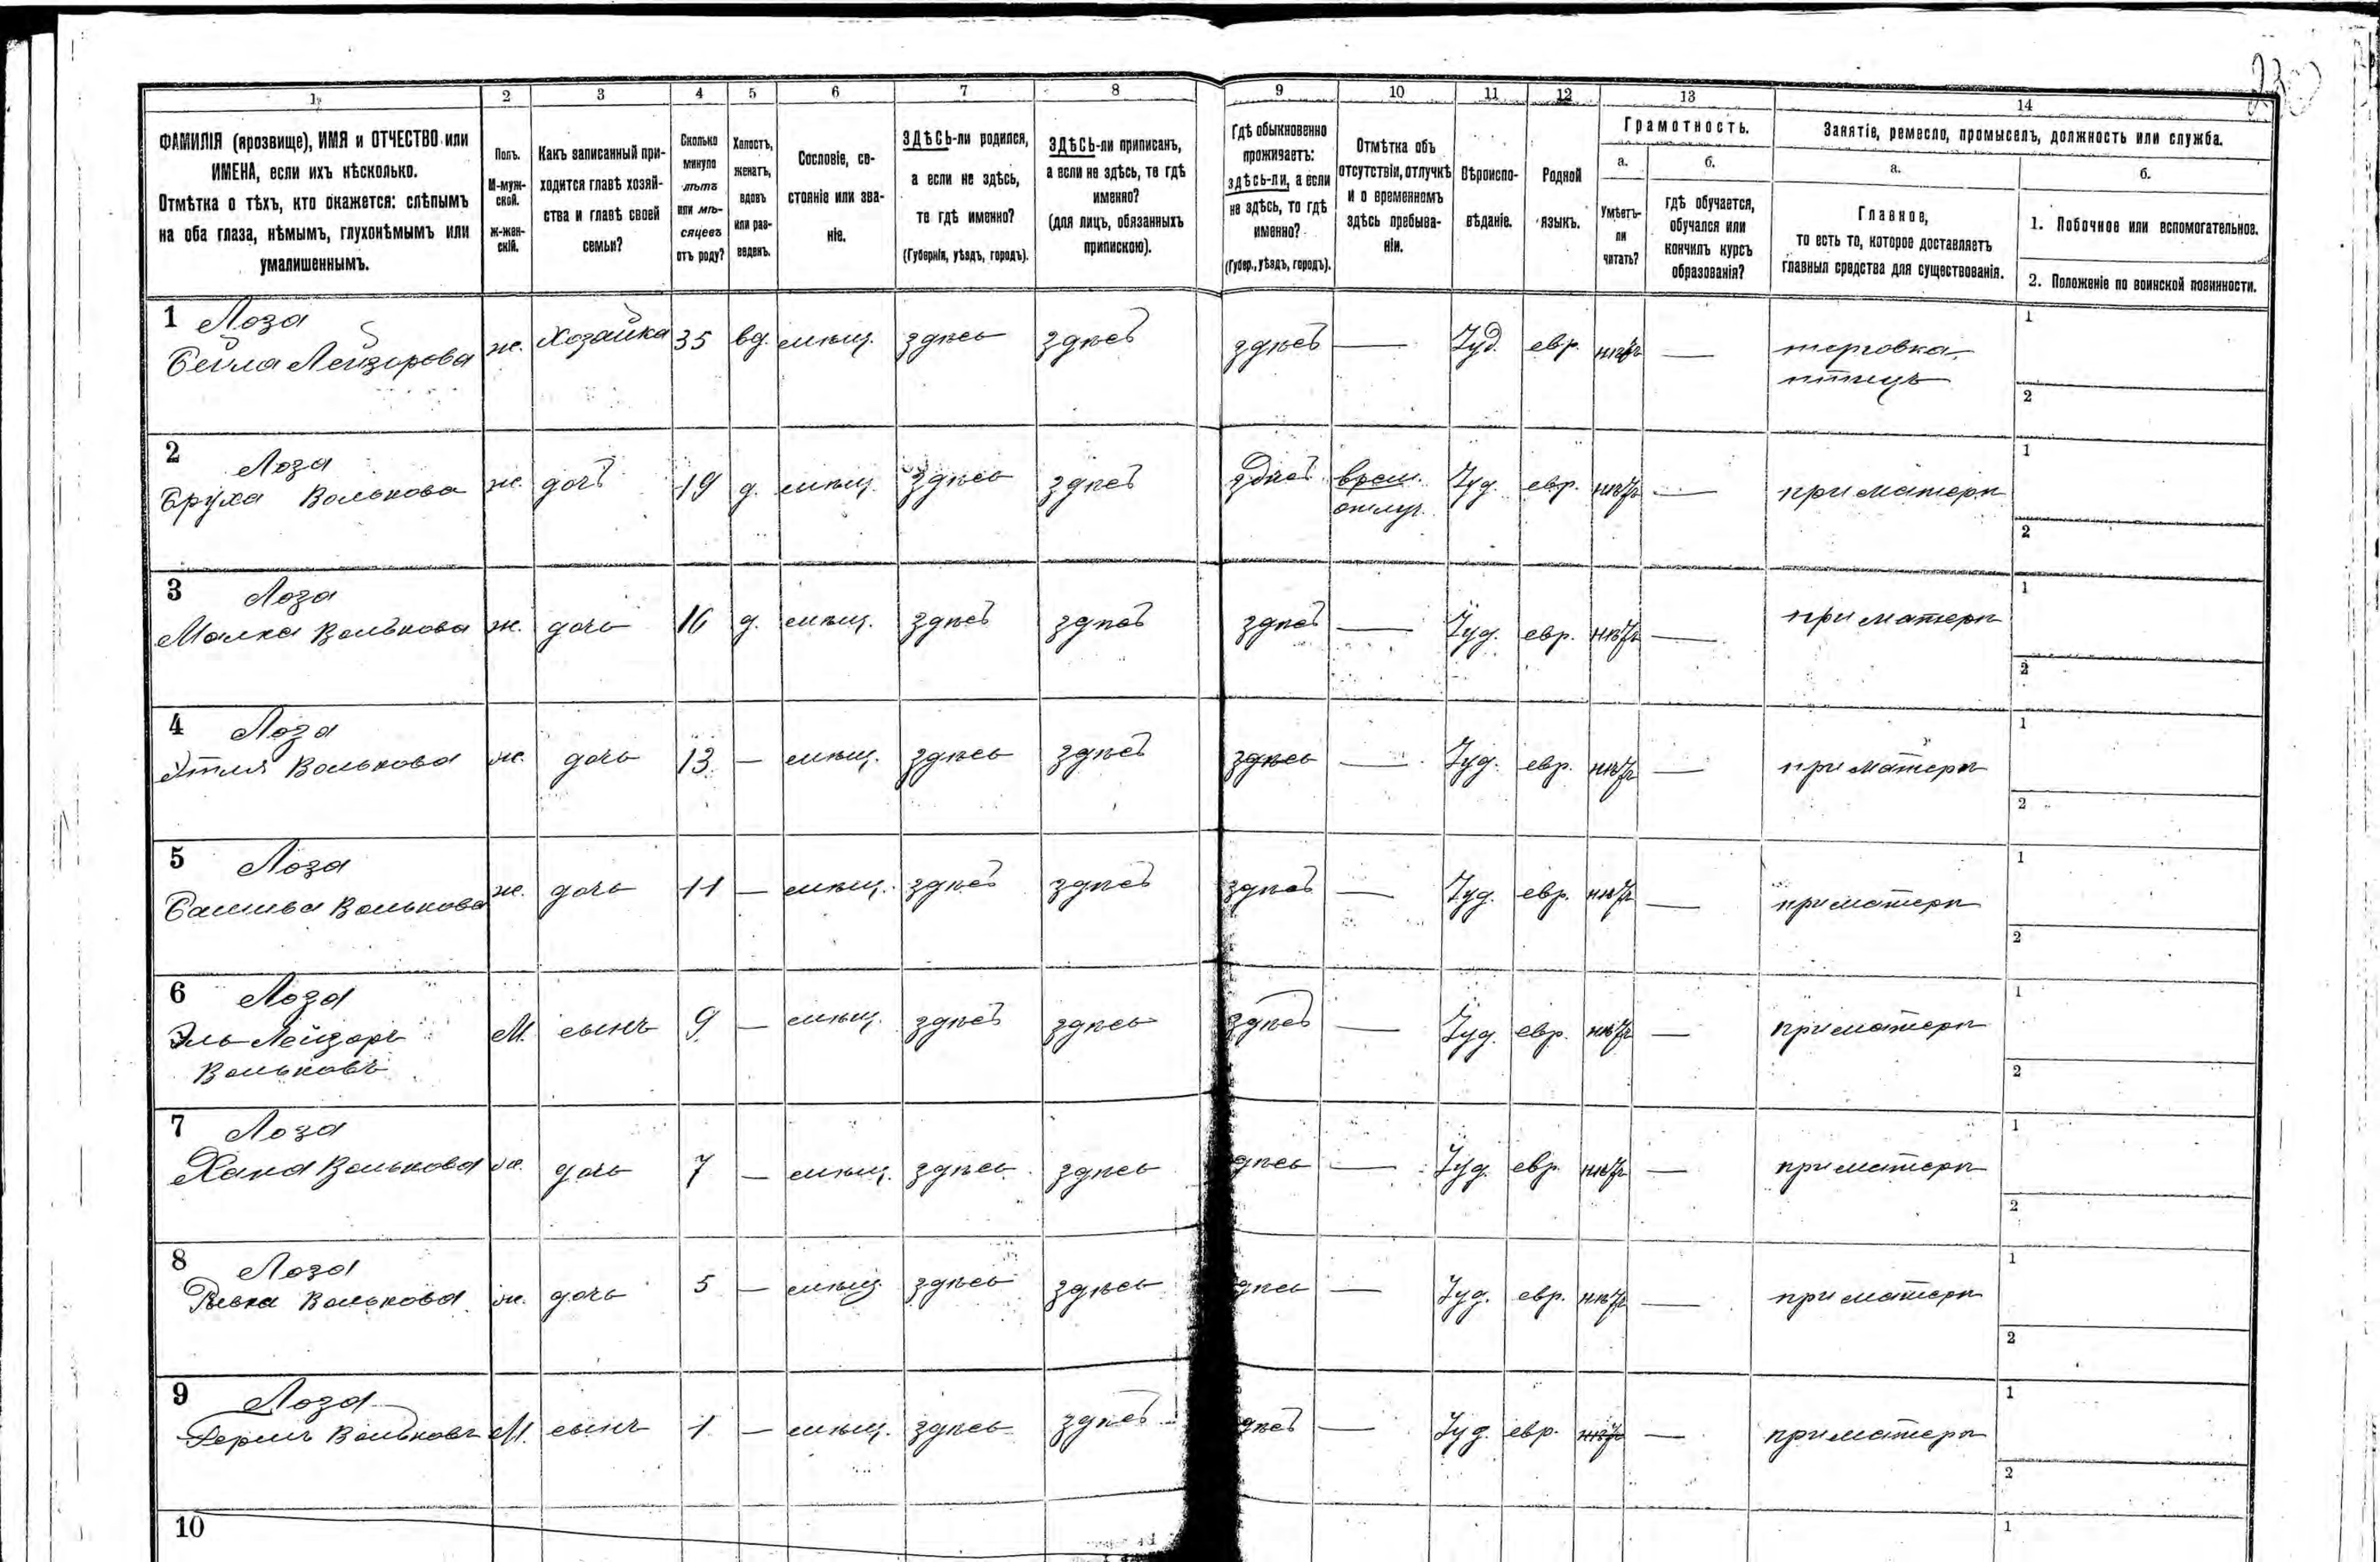 230
1 2 3 4 5 6 7 8 9 10 11 12 13 14
ФАМИЛІЯ (прозвище), ИМЯ и ОТЧЕСТВО или
ИМЕНА, если ихъ нѣсколько.
Отмѣтка о тѣхъ, кто окажется: слѣпымъ
на оба глаза, нѣмымъ, глухонѣмымъ или
умалишеннымъ.
Полъ.
М-муж-
ской.
Ж-жен-
скій.
Какъ записанный при-
ходится главѣ хозяй-
ства и главѣ своей
семьи?
Сколько
минуло
лѣтъ
или мѣ-
сяцевъ
отъ роду?
Холостъ,
женатъ,
вдовъ
или раз-
веденъ.
Сословіе, со-
стояніе или зва-
ніе.
ЗДѢСЬ-ли родился,
а если не здѣсь,
то гдѣ именно?
(Губернія, уѣздъ, городъ).
ЗДѢСЬ-ли приписанъ,
а если не здѣсь, то гдѣ
именно?
(для лицъ, обязанныхъ
припискою).
Гдѣ обыкновенно
проживаетъ:
здѣсь-ли, а если
не здѣсь, то гдѣ
именно?
(Губер., уѣздъ, городъ).
Отмѣтка объ
отсутствіи, отлучкѣ
и о временномъ
здѣсь пребыва-
ніи.
Вѣроиспо-
вѣданіе.
Родной
языкъ.
Грамотность.
а.
Умѣетъ-
ли
читать?
б.
гдѣ обучается,
обучался или
кончилъ курсъ
образованія?
Занятіе, ремесло, промыселъ, должность или служба.
а.
Главное,
то есть то, которое доставляетъ
главныя средства для существованія.
б.
1. Побочное или вспомогательное.
2. Положеніе по воинской повинности.
1 Лоза
Бейла Лейзерова ж. Хозайка 35 вд. мѣщ. здѣсь здѣсь здѣсь — Іуд. евр. нѣтъ — торговка 1
птицъ 2
2 Лоза
Бруха Волькова ж. дочь 19 д. мѣщ. здѣсь здѣсь здѣсь врем. Іуд. евр. нѣтъ — при матери 1
отлуч. 2
3 Лоза
Малка Волькова ж. дочь 16 д. мѣщ. здѣсь здѣсь здѣсь — Іуд. евр. нѣтъ — при матери 1
2
4 Лоза
Этля Волькова ж. дочь 13 — мѣщ. здѣсь здѣсь здѣсь — Іуд. евр. нѣтъ — при матери 1
2
5 Лоза
Волькова ж. дочь 11 — мѣщ. здѣсь здѣсь здѣсь — Іуд. евр. нѣтъ — при матери 1
2
6 Лоза
Эль Лейзоръ М. сынъ 9 — мѣщ. здѣсь здѣсь здѣсь — Іуд. евр. нѣтъ — при матери 1
Вольковъ 2
7 Лоза
Хана Волькова ж. дочь 7 — мѣщ. здѣсь здѣсь здѣсь — Іуд. евр. нѣтъ — при матери 1
2
8 Лоза
Ривка Волькова ж. дочь 5 — мѣщ. здѣсь здѣсь здѣсь — Іуд. евр. нѣтъ — при матери 1
2
9 Лоза
Вольковъ М. сынъ 1 — мѣщ. здѣсь здѣсь здѣсь — Іуд. евр. нѣтъ — при матери 1
2
10 1